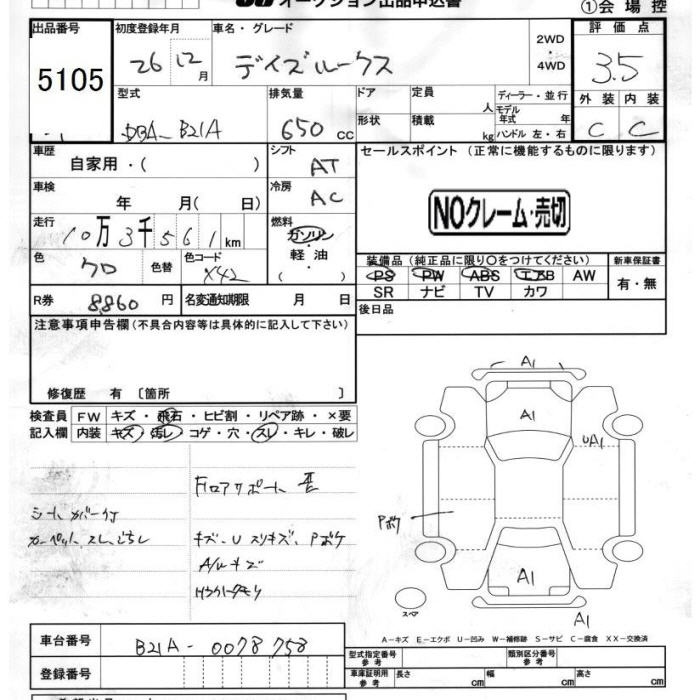 オークション出品申込書 ①会場控
出品番号 5105
初度登録年月 26 12月
車名・グレード デイズルークス
2WD・4WD
評価点 3.5
外装 C 内装 C
型式 DBA-B21A
排気量 650 cc
ドア 形状
定員 人
積載 kg
ディーラー・並行
モデル年式 年
ハンドル 左・右
車歴 自家用・( )
シフト AT
車検 年 月( 日)
冷房 AC
走行 10万3千561km
燃料 ガソリン・軽油・( )
色 クロ 色替
色コード X42
R券 8,860円
名変通知期限 月 日
セールスポイント (正常に機能するものに限ります)
NOクレーム・売切
装備品(純正品に限り○をつけてください)
PS PW ABS エアB AW
SR ナビ TV カワ
新車保証書 有・無
後日品
注意事項申告欄(不具合内容等は具体的に記入して下さい)
修復歴 有 〔箇所 〕
検査員記入欄
FW キズ・飛石・ヒビ割・リペア跡・×要
内装 キズ・汚レ・コゲ・穴・スレ・キレ・破レ
フロアサポート 歪
シートカバー付
カーペット スレ、ごちし
キズ、U スリキズ、Pボケ
A/Wキズ
A1
A1
UA1
Pボケ
A1
A1
スペア
A-キズ E-エクボ U-凹み W-補修跡 S-サビ C-腐食 XX-交換済
車台番号 B21A-0078758
登録番号
型式指定番号 参考
類別区分番号 参考
車庫証明用 参考 長さ cm 幅 cm 高さ cm